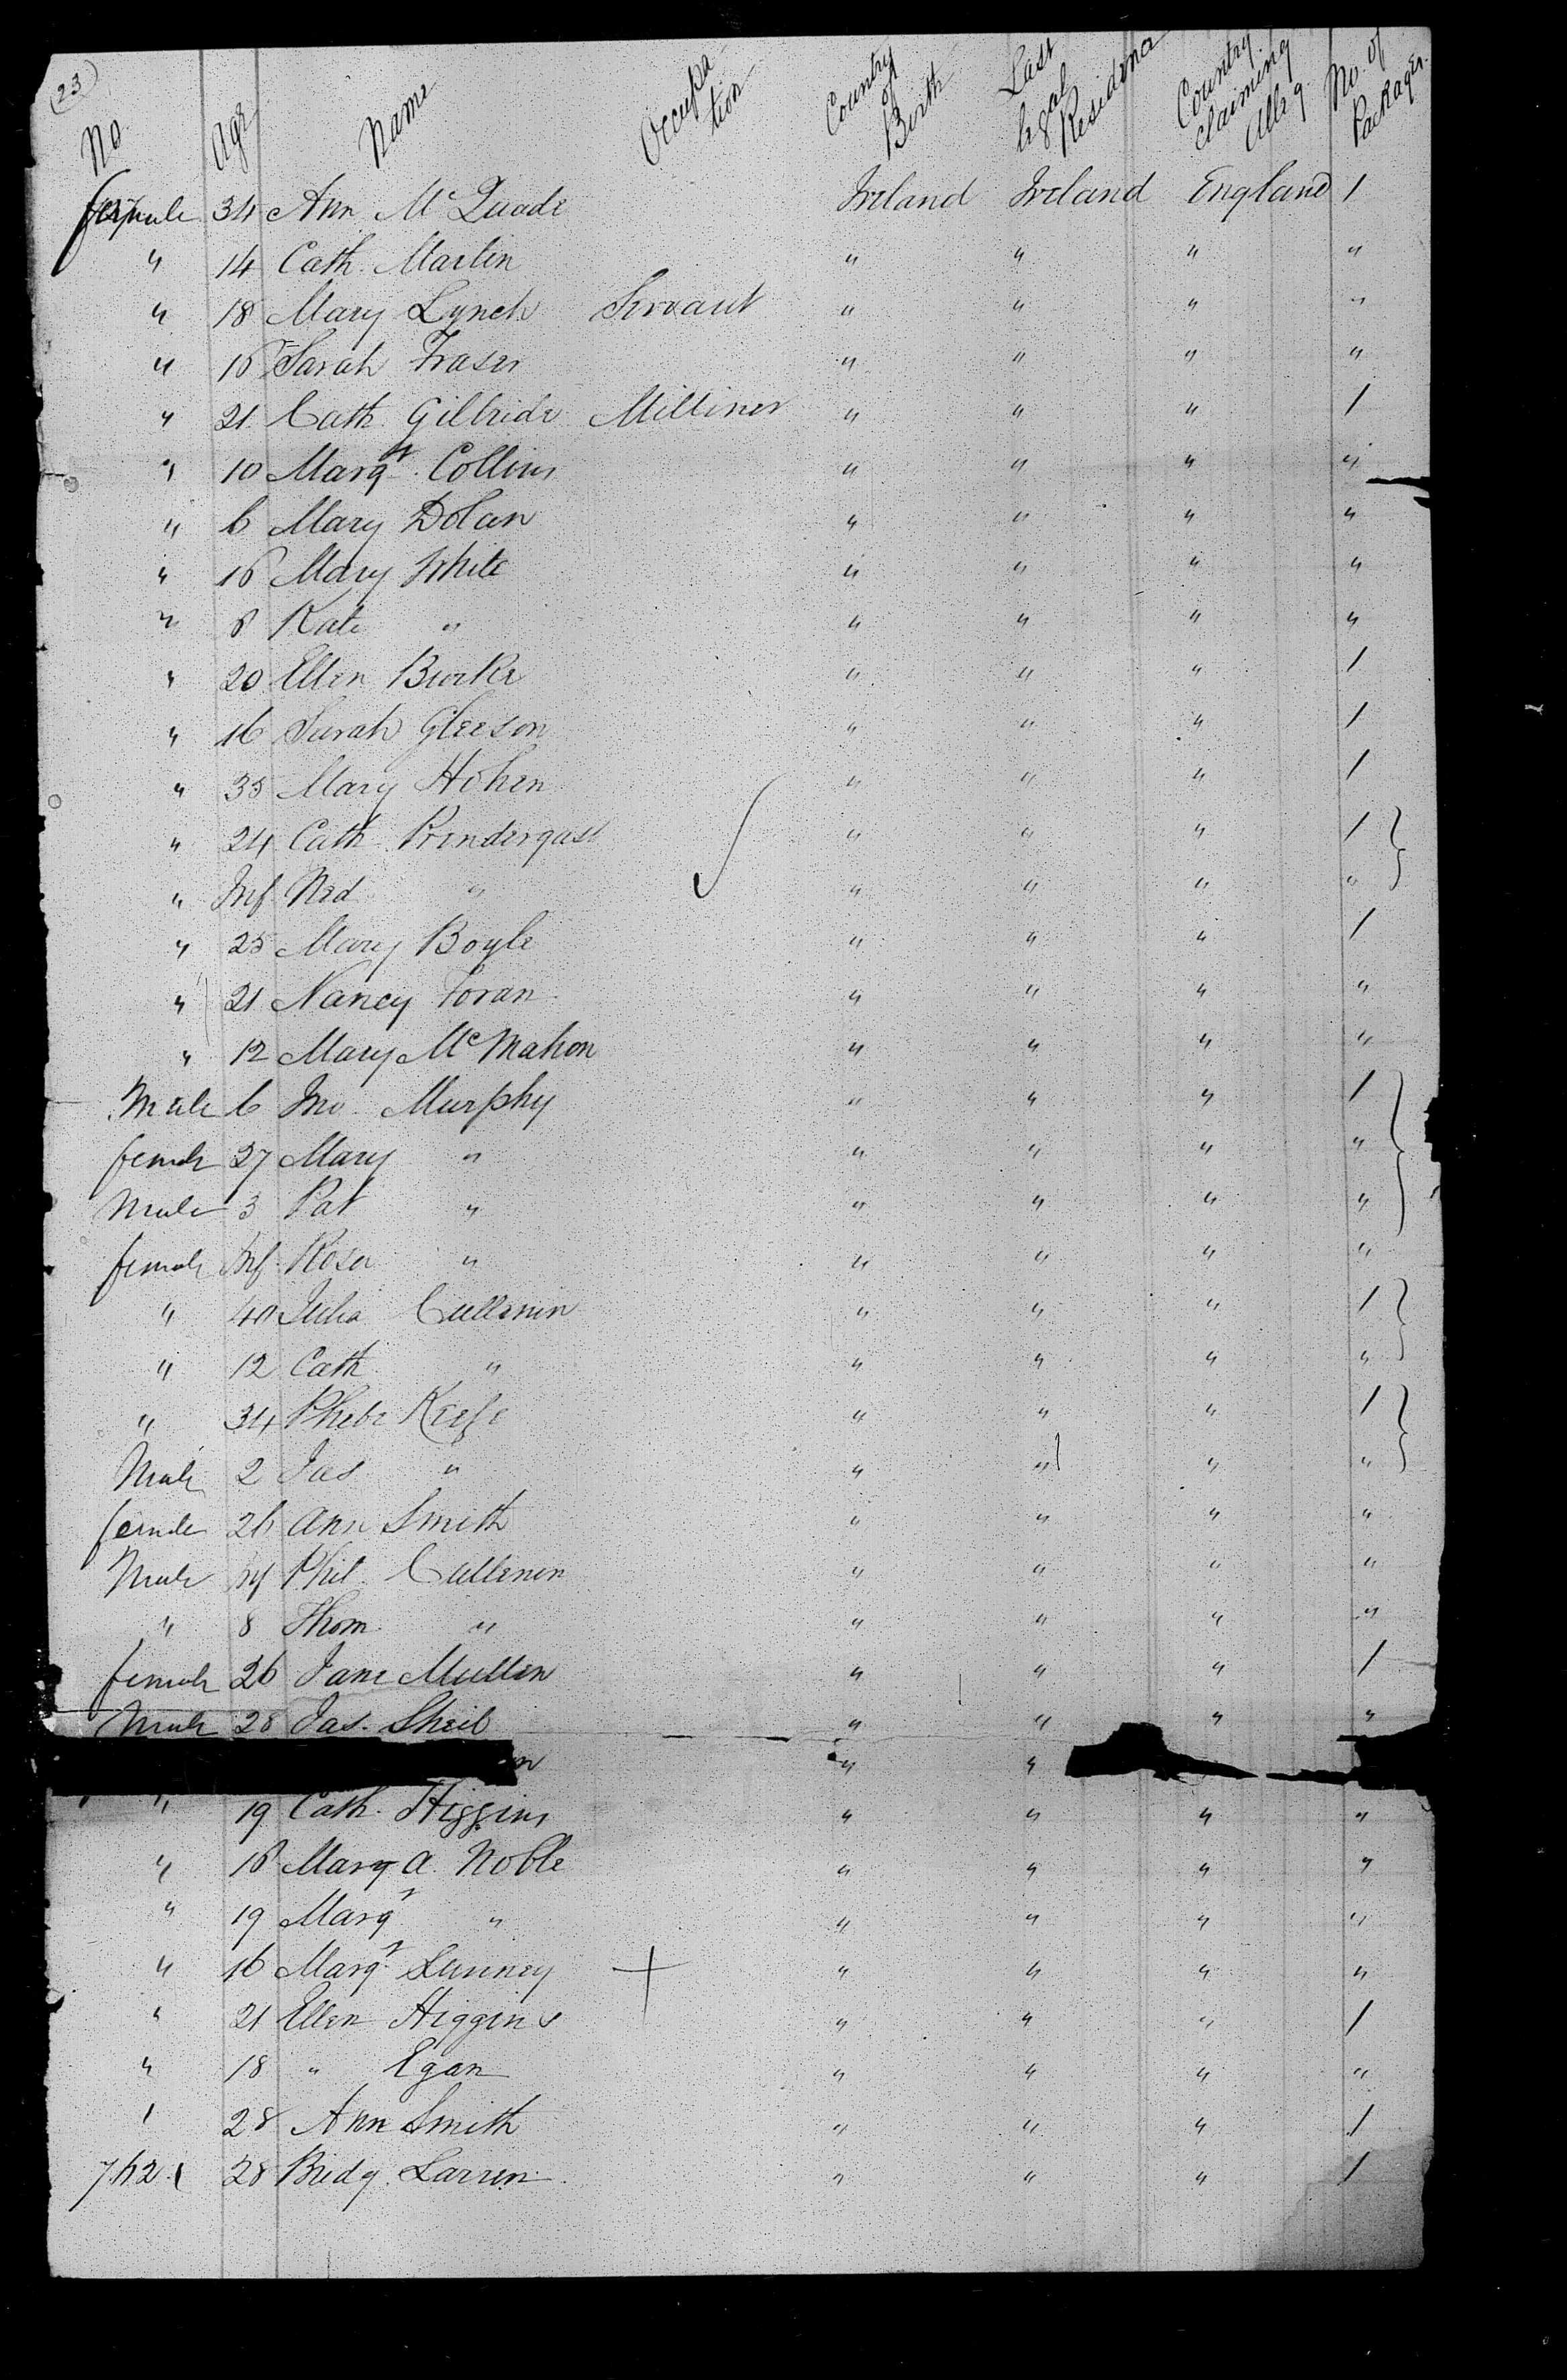 (23)
No Age Name Occupation Country of Birth Last legal Residence Country claiming Alleg. No. of Packages.
female 34 Ann McQuade Ireland Ireland England 1
" 14 Cath. Martin " " " "
" 18 Mary Lynch Servant " " " "
" 16 Sarah Fraser " " " "
" 21 Cath. Gilbride Milliner " " " 1
" 10 Margt. Collins " " " "
" 6 Mary Dolan " " " "
" 16 Mary White " " " "
" 8 Kate " " " " "
" 20 Ellen Burke " " " 1
" 16 Sarah Gleeson " " " 1
" 35 Mary Hohen " " " 1
" 24 Cath. Prendergast " " " 1
" Inf Ned " " " " "
" 25 Mary Boyle " " " 1
" 21 Nancy Foran " " " "
" 12 Mary McMahon " " " "
Male 6 Jno. Murphy " " " 1
female 27 Mary " " " " "
Male 3 Pat " " " " "
female Inf Rosa " " " " "
" 40 Julia Cullenin " " " 1
" 12 Cath " " " " "
" 34 Phebe Keefe " " " 1
Male 2 Jas " " " " "
female 26 Ann Smith " " " "
Male Phil. Cullenen " " " "
" 8 Thom. " " " " "
female 26 Jane Mullen " " " 1
Male 28 Jas. Sheil " " " "
" "
" 19 Cath. Higgins " " " "
" 18 Mary A. Noble " " " "
" 19 Margt " " " " "
" 16 Margt. Lunney " " " "
" 21 Ellen Higgins " " " 1
" 18 " Egan " " " "
" 28 Ann Smith " " " 1
762 28 Bridg. Larren " " " 1